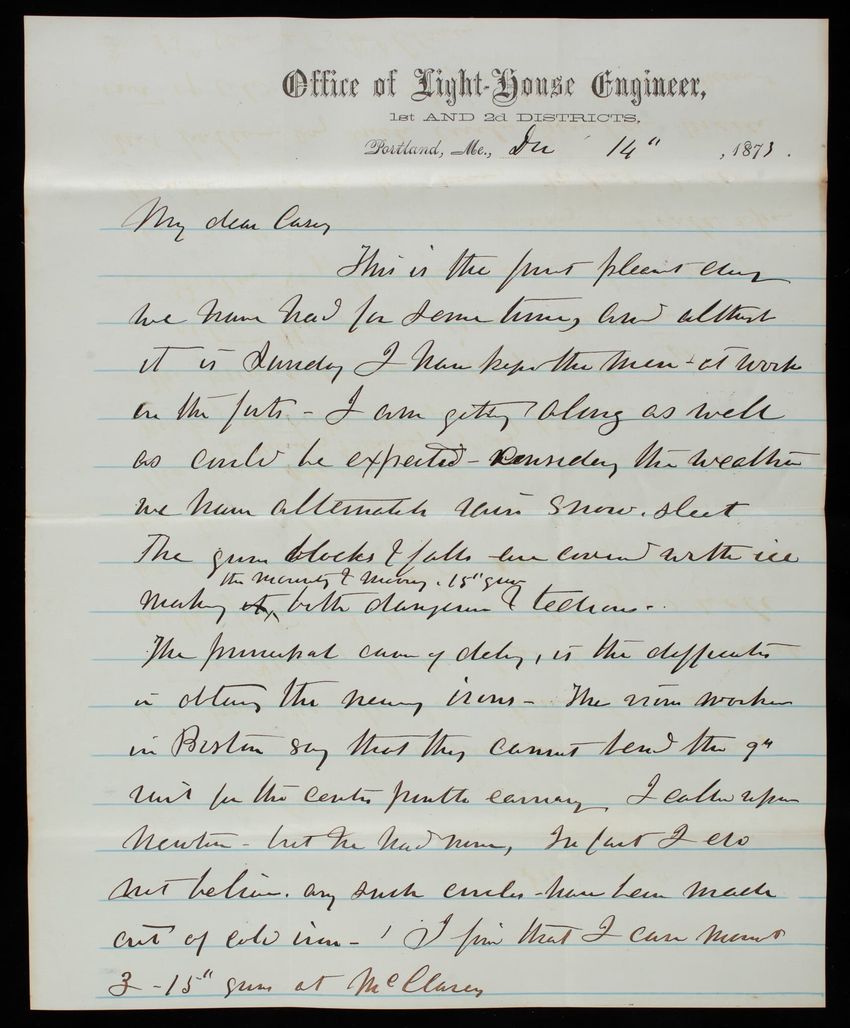 Office of Light-House Engineer,
1st AND 2d DISTRICTS,
Portland, Me., Dec 14" , 1873.
My dear Casey
This is the first pleasant day
we have had for some time, and altho
it is Sunday I have kept the men at work
on the forts - I am getting along as well
as could be expected - considering the weather
we have alternately rain snow. sleet
The gun blocks & falls are covered with ice
the mounting & moving. 15" guns
making it both dangerous & tedious -
The principal cause of delay, is the difficulty
in obtaining the necessary irons - The iron workers
in Boston say that they cannot bend the 9"
for the centre pintle carriage I called upon
Newton - but he had none, In fact I do
not believe. any such circles have been made
out of cold iron - ! I find that I can mount
3 - 15" guns at McClary